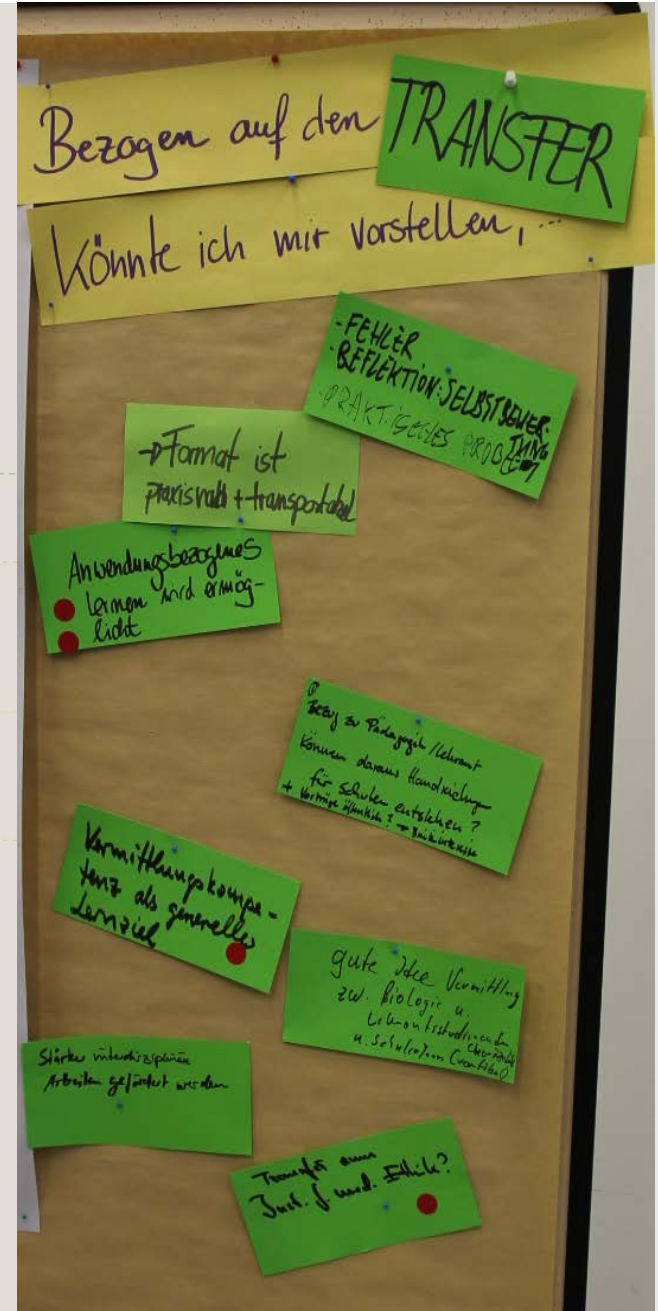 Bezogen auf den TRANSFER
könnte ich mir vorstellen, ...
- FEHLER
- REFLEKTION: SELBSTBEWER-
TUNG
- PRAKTISCHES PROBLEM
→ Format ist
praxisnah + transportabel
Anwendungsbezogenes
lernen wird ermög-
licht
Bezug zu Pädagogik / Lehramt
Können daraus Handreichungen
für Schulen entstehen?
+ Vorträge öffentlich? →
Vermittlungskompe-
tenz als generelles
Lernziel
gute Idee Vermittlung
zw. Biologie u.
Lehramtsstudierenden
u. Schüler/inn
Stärker interdisziplinäre
Arbeiten gefördert werden
Transfer zum
Inst. f. med. Ethik?